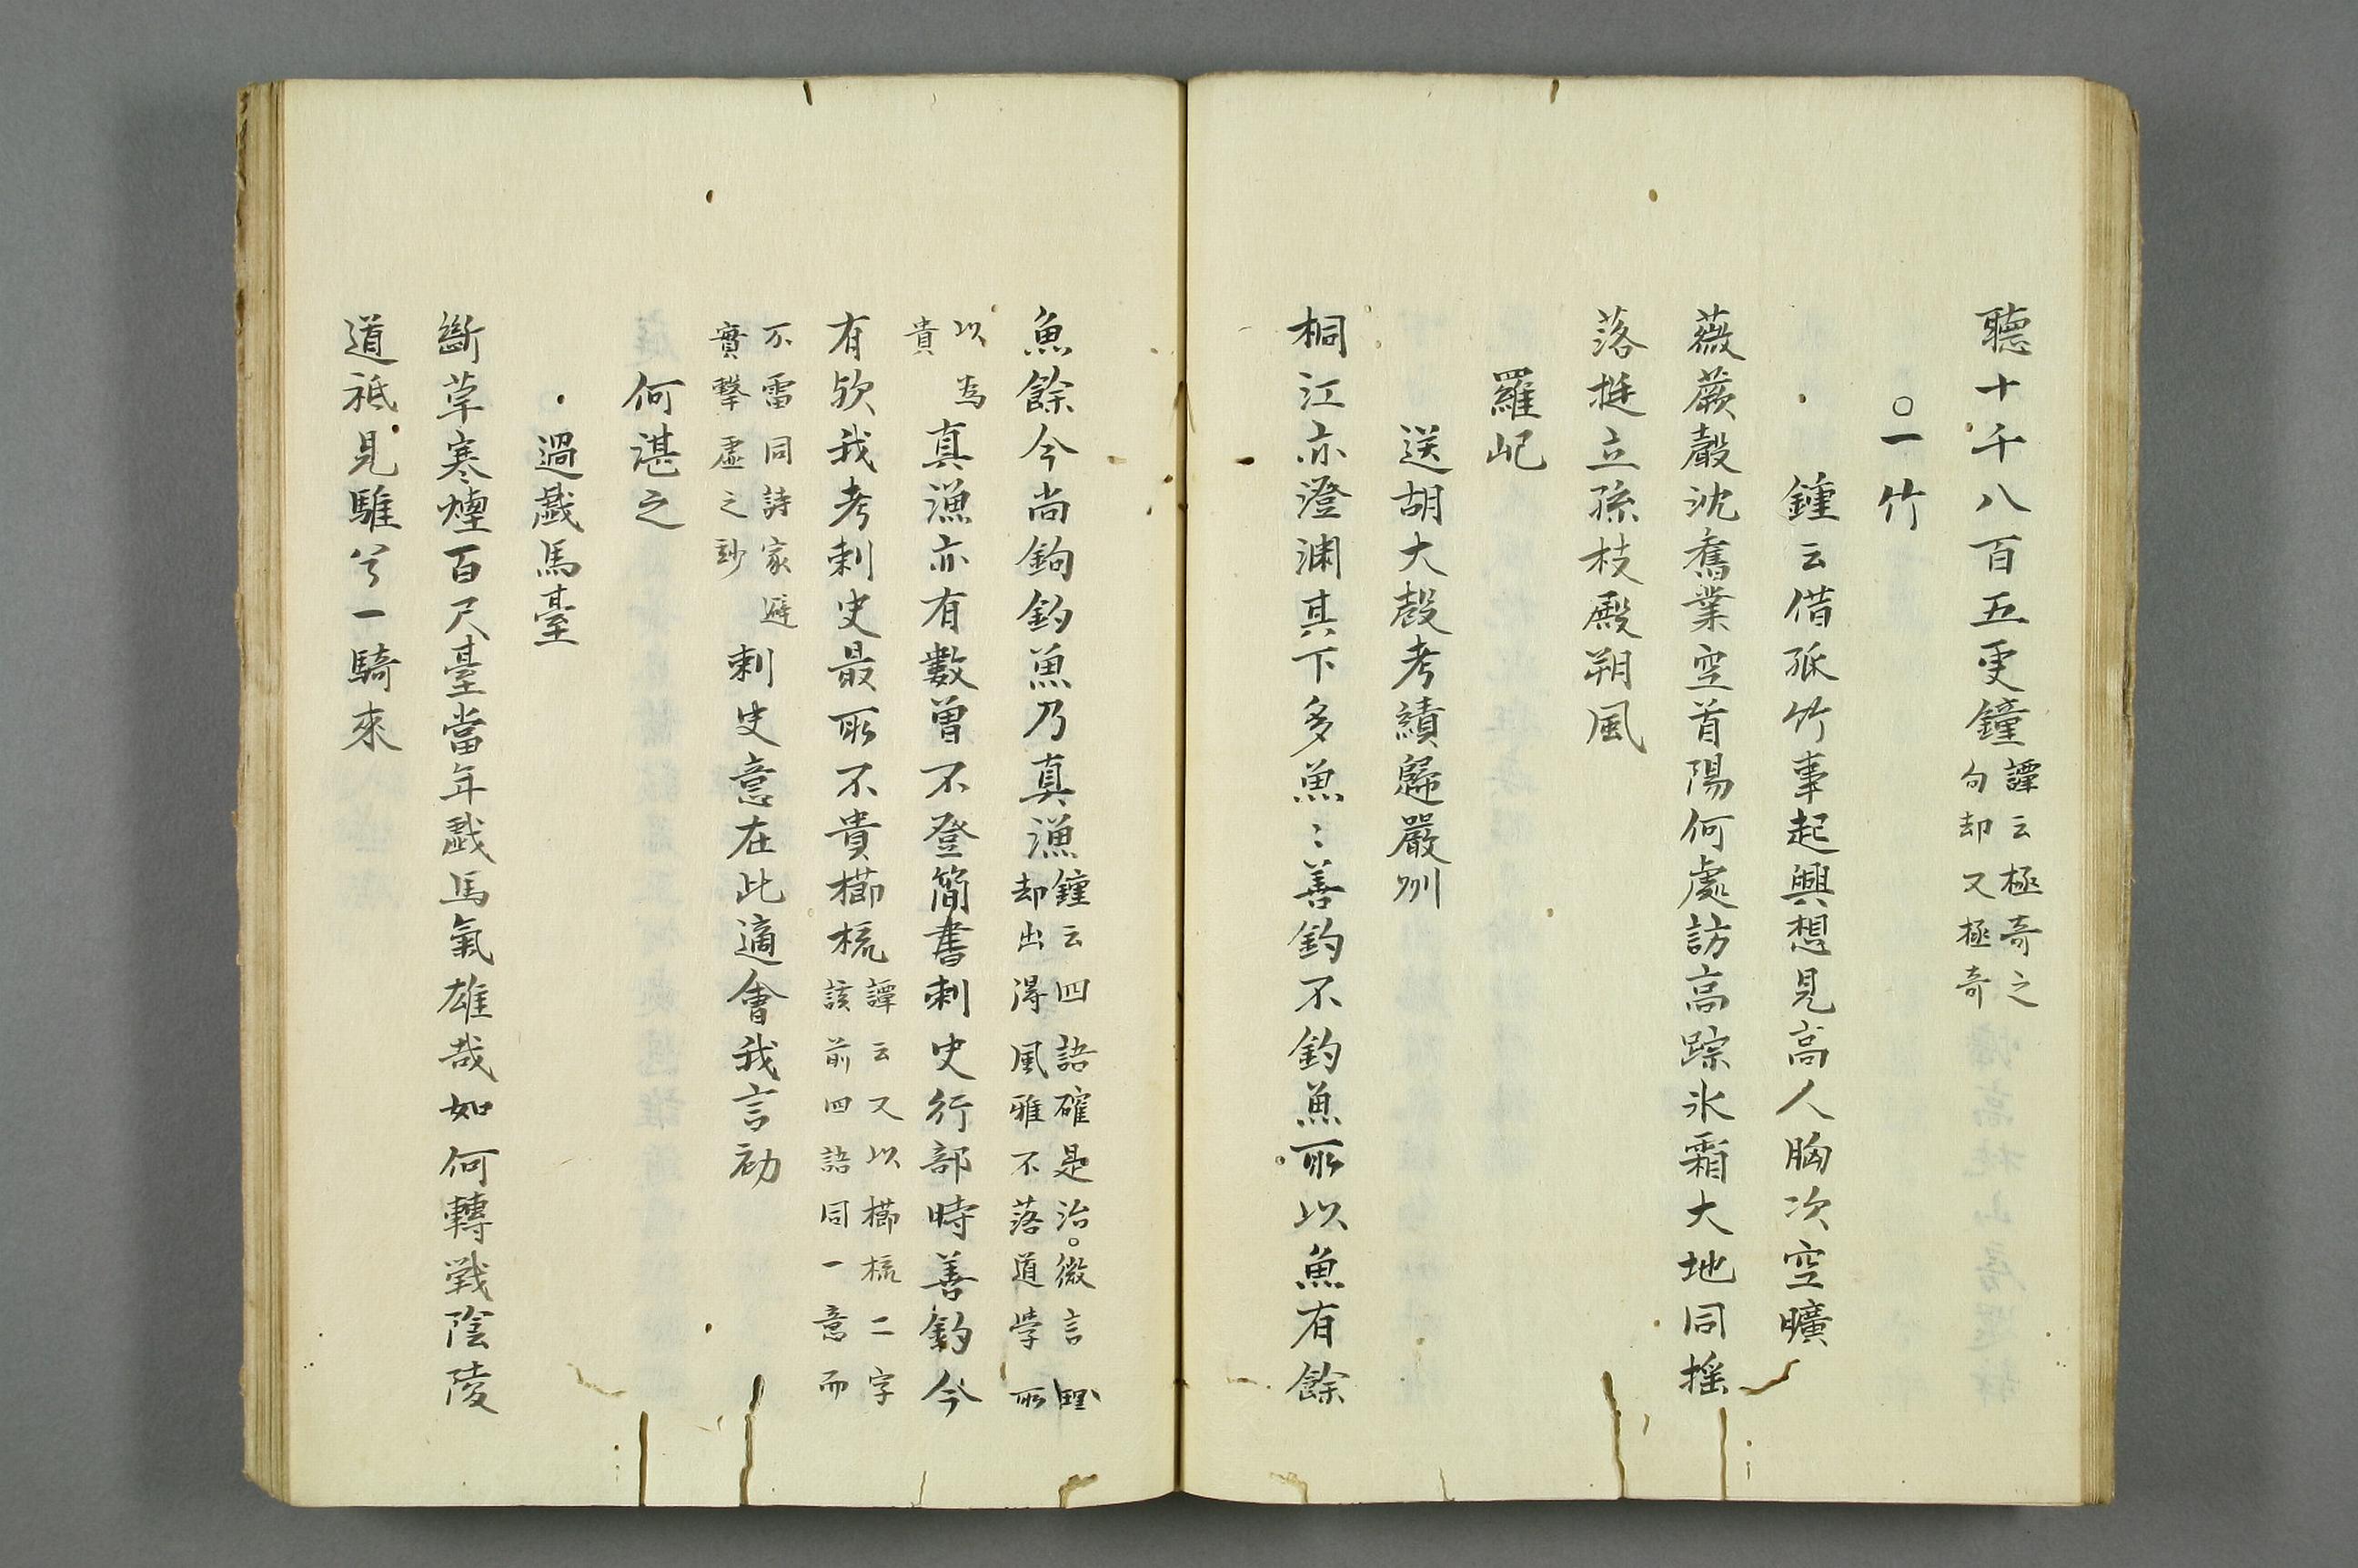 聽十千八百五更鐘譚云極奇之句却又極奇
○一竹
鍾云借孤竹事起興想見高人胸次空曠
薇蕨聲沈舊業空首陽何處訪高踪氷霜大地同搖
落挺立孫枝殿朔風
羅屺
送胡大愨考績歸嚴州
桐江亦澄渊其下多魚〻善釣不釣魚所以魚有餘
魚餘今尚鉤釣魚乃真漁鍾云四語確是治。微言却出得風雅不落道學所
以為貴真漁亦有數曾不登簡書刺史行部時善釣今
有欤我考刺史最所不貴櫛梳譚云又以櫛梳二字該前四語同一意而
不雷同詩家避實擊虛之玅刺史意在此適會我言劾
何諶之
過戯馬臺
斷草寒煙百尺臺當年戯馬氣雄哉如何轉戰陰陵
道祗見騅兮一騎來